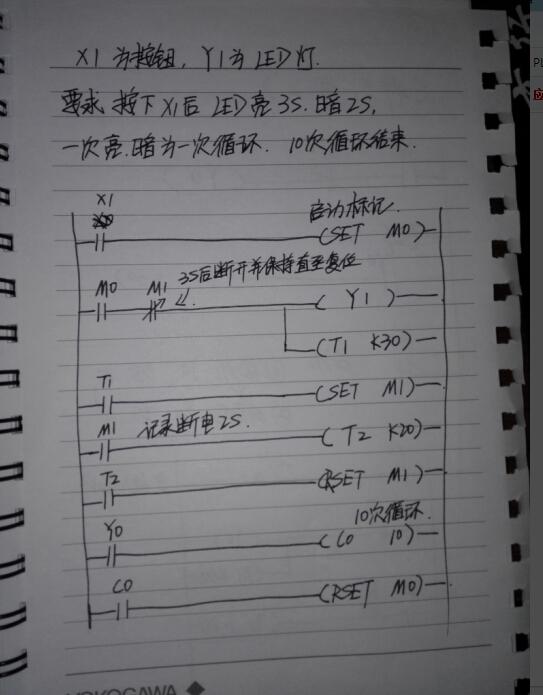 X1 为按钮, Y1 为 LED 灯.
要求 按下 X1 后 LED 亮 3S. 暗 2S,
一次亮.暗为一次循环. 10次循环结束.
X1
启动标记.
(SET M0)
M0 M1 3S后断开并保持直至复位
( Y1 )
(T1 K30)
T1
(SET M1)
M1 记录断电2S.
(T2 K20)
T2
(RSET M1)
Y0 10次循环.
(C0 10)
C0
(RSET M0)
YOKOGAWA
PL